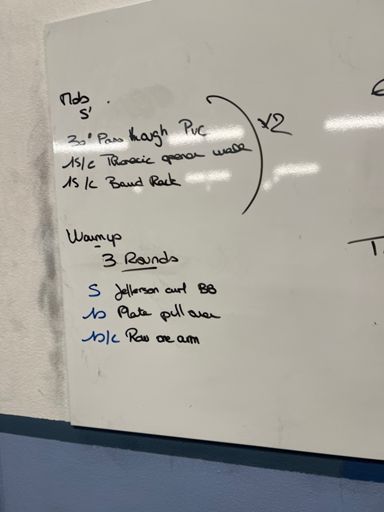 Mob
5'
30" Pass through PVC
15/c Thoracic opener wall
15/c Band Rack
x2
Warmup
3 Rounds
5 Jefferson curl BB
10 Plate pull over
10/c Row one arm